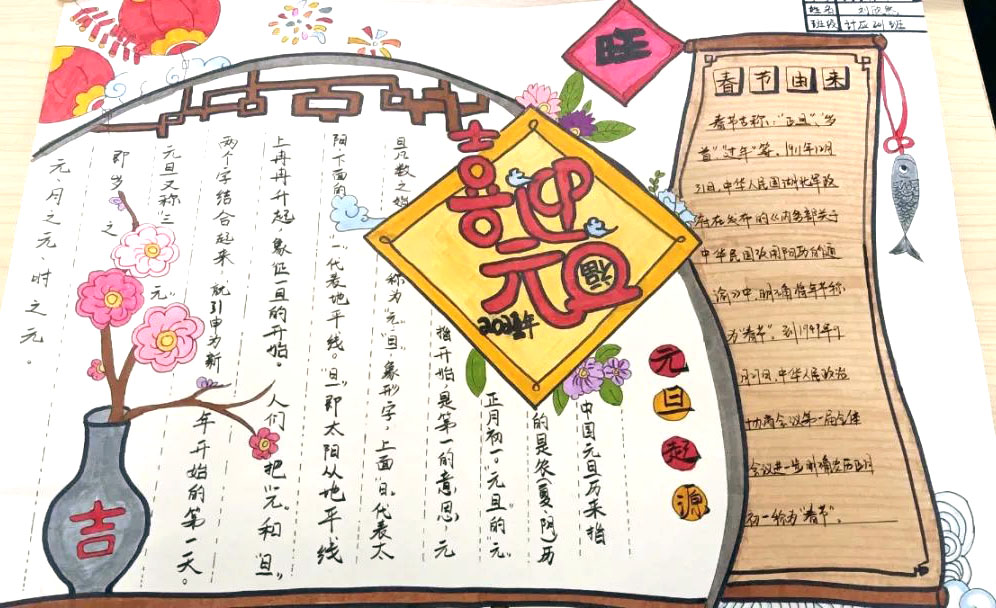 姓名 刘欣然
班级 计应211班
旺
喜迎
元旦
福
吉
春节由来
春节古称:"正旦"、"岁
首""过年"等。1911年12月
31日,中华人民国湖北军政
府在发布的《内务部关于
中华民国改用阳历的通
谕》中,明确将春节称
为"春节"。到1949年9
月27日,中华人民政治
协商会议第一届全体
会议进一步明确农历正月
初一称为"春节"。
元旦起源
中国元旦历来指
的是农(夏、阴)历
正月初一。"元旦"的"元"
指开始,是第一的意思。元
旦凡数之始 称为"元"。"旦",象形字,上面"日"代表太
阳,下面的 "一"代表地平线。"旦"即太阳从地平线
上冉冉升起,象征一日的开始。人们把"元"和"旦"
两个字结合起来,就引申为新
年开始的第一天。
元旦又称"三元"
即岁之
元、月之元、时之元。